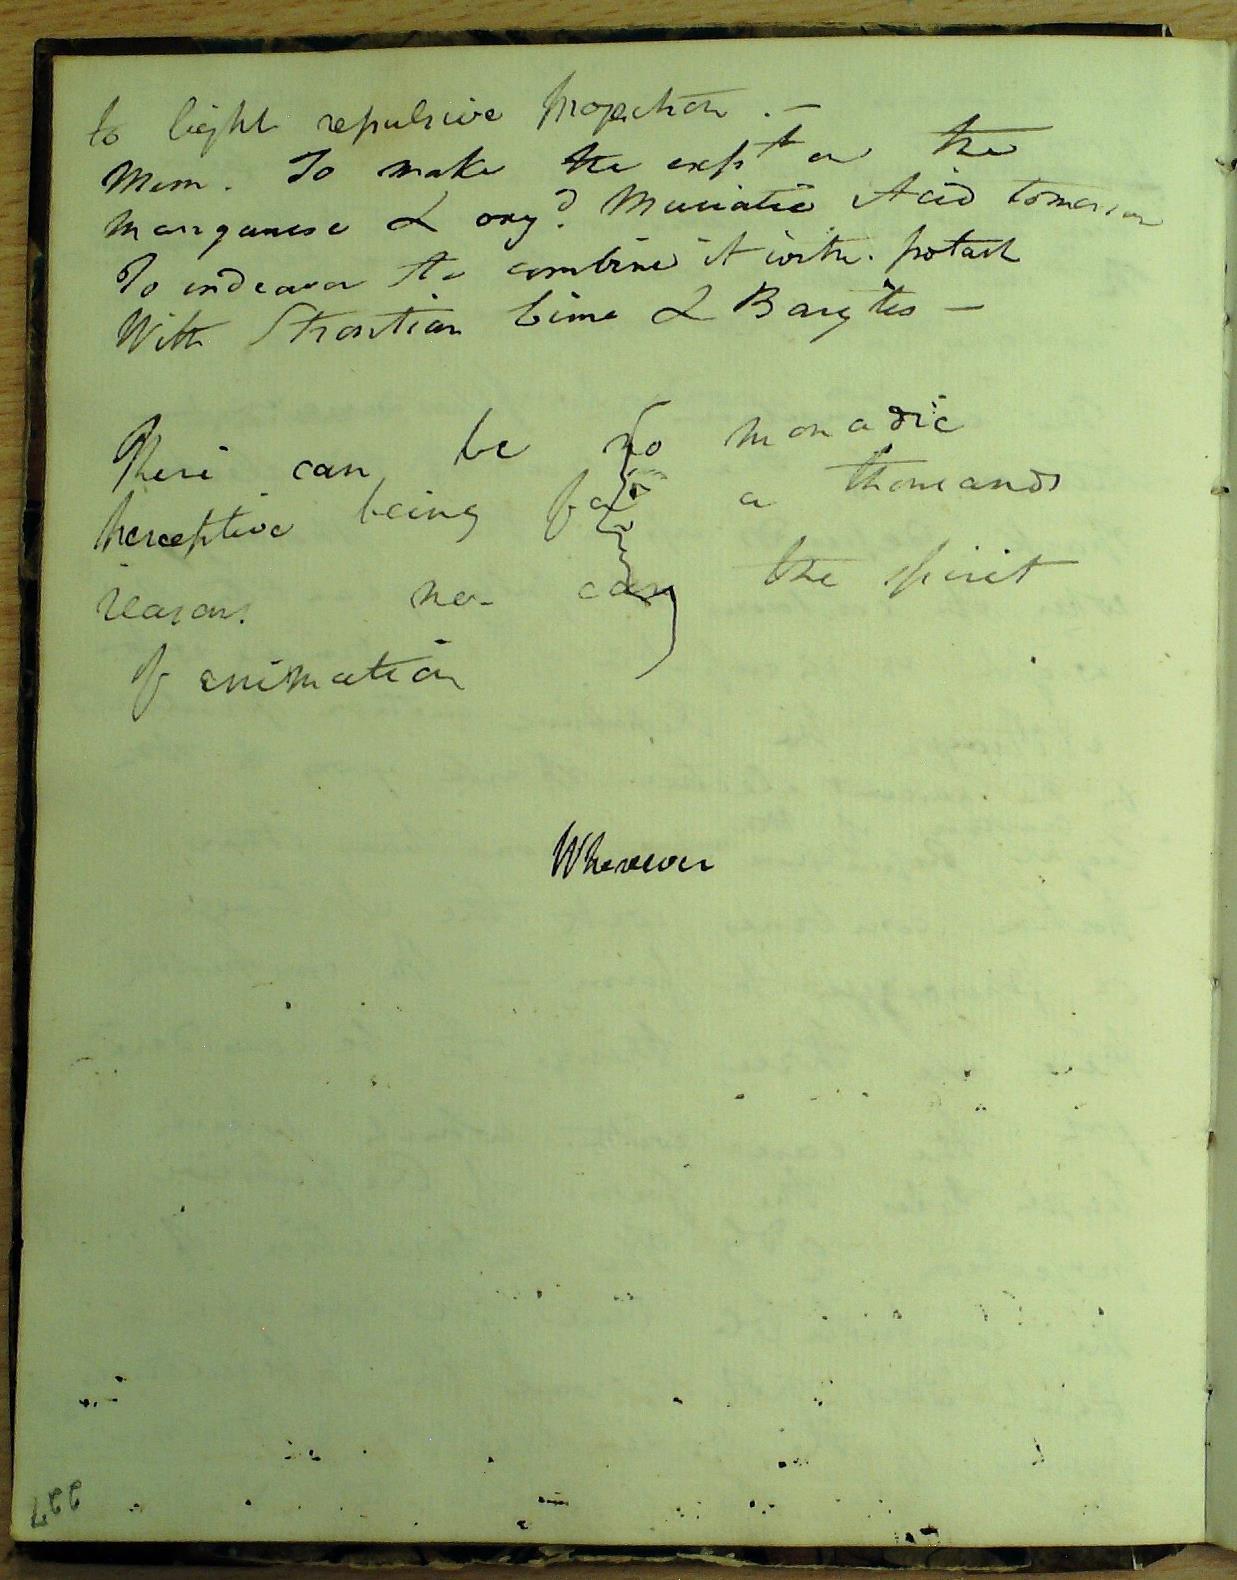 to light repulsive projection . —
Mem. To make the exp^t on the
manganese & oxy^d. Muriatic Acid tomorrow
To endeavor to combine it with. potash
With Strontian lime & Barytes —
There can be no monadic
perceptive being for a thousand
reasons no can the spirit
of animation
Wherever
227